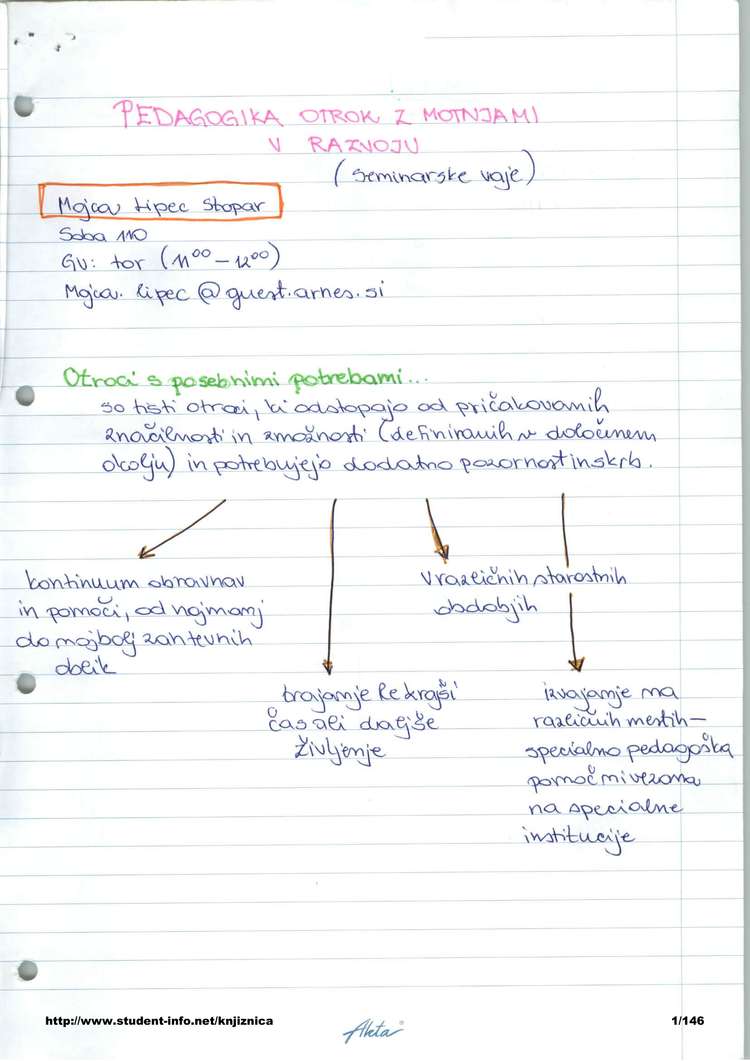 PEDAGOGIKA OTROK Z MOTNJAMI
V RAZVOJU
(seminarske vaje)
Mojca Lipec Stopar
Soba 110
GU: tor (11⁰⁰ – 12⁰⁰)
Mojca.lipec@guest.arnes.si
Otroci s posebnimi potrebami...
so tisti otroci, ki odstopajo od pričakovanih
značilnosti in zmožnosti (definiranih v določenem
okolju) in potrebujejo dodatno pozornost in skrb.
kontinuum obravnav
in pomoči, od najmanj
do najbolj zahtevnih
oblik
v različnih starostnih
obdobjih
trajanje le krajši
čas ali daljše
življenje
izvajanje na
različnih mestih –
specialno pedagoška
pomoč ni vezana
na specialne
institucije
http://www.student-info.net/knjiznica
Akta
1/146